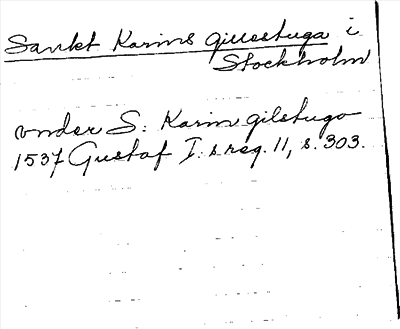 Sankt Karins gillestuga i
Stockholm
under S: Karin gilstugo
1537 Gustaf I:s reg. 11, s. 303.